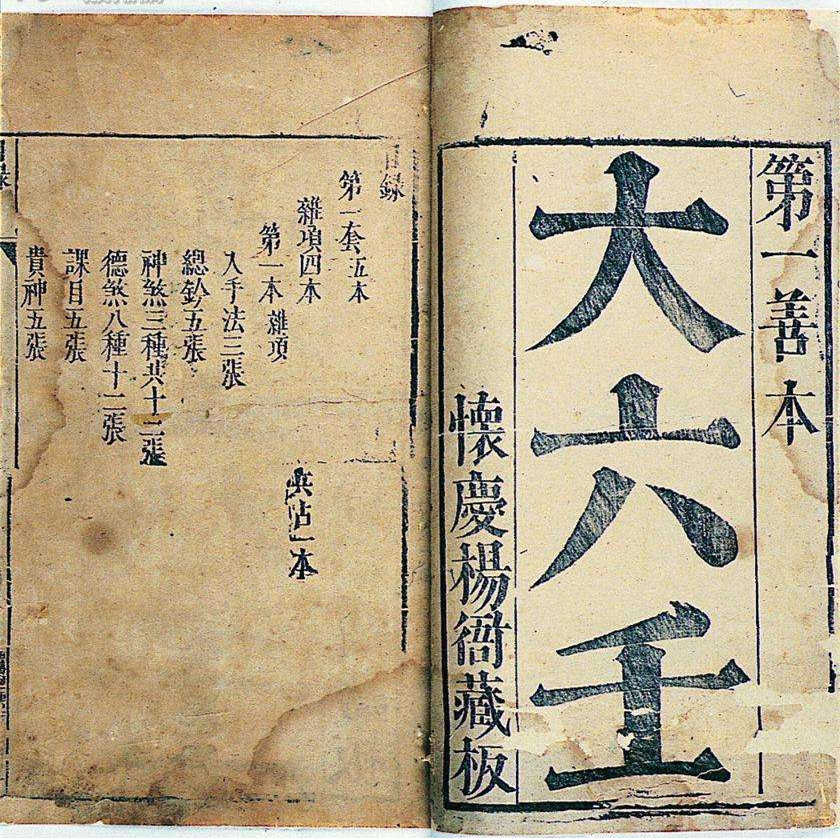 第一善本
大六壬
懷慶楊衙藏板
目録
第一套五本
雜項四本
兵占一本
第一本 雜項
入手法三張
總鈐五張
神煞三種共十二張
德煞八種十二張
課目五張
貴神五張